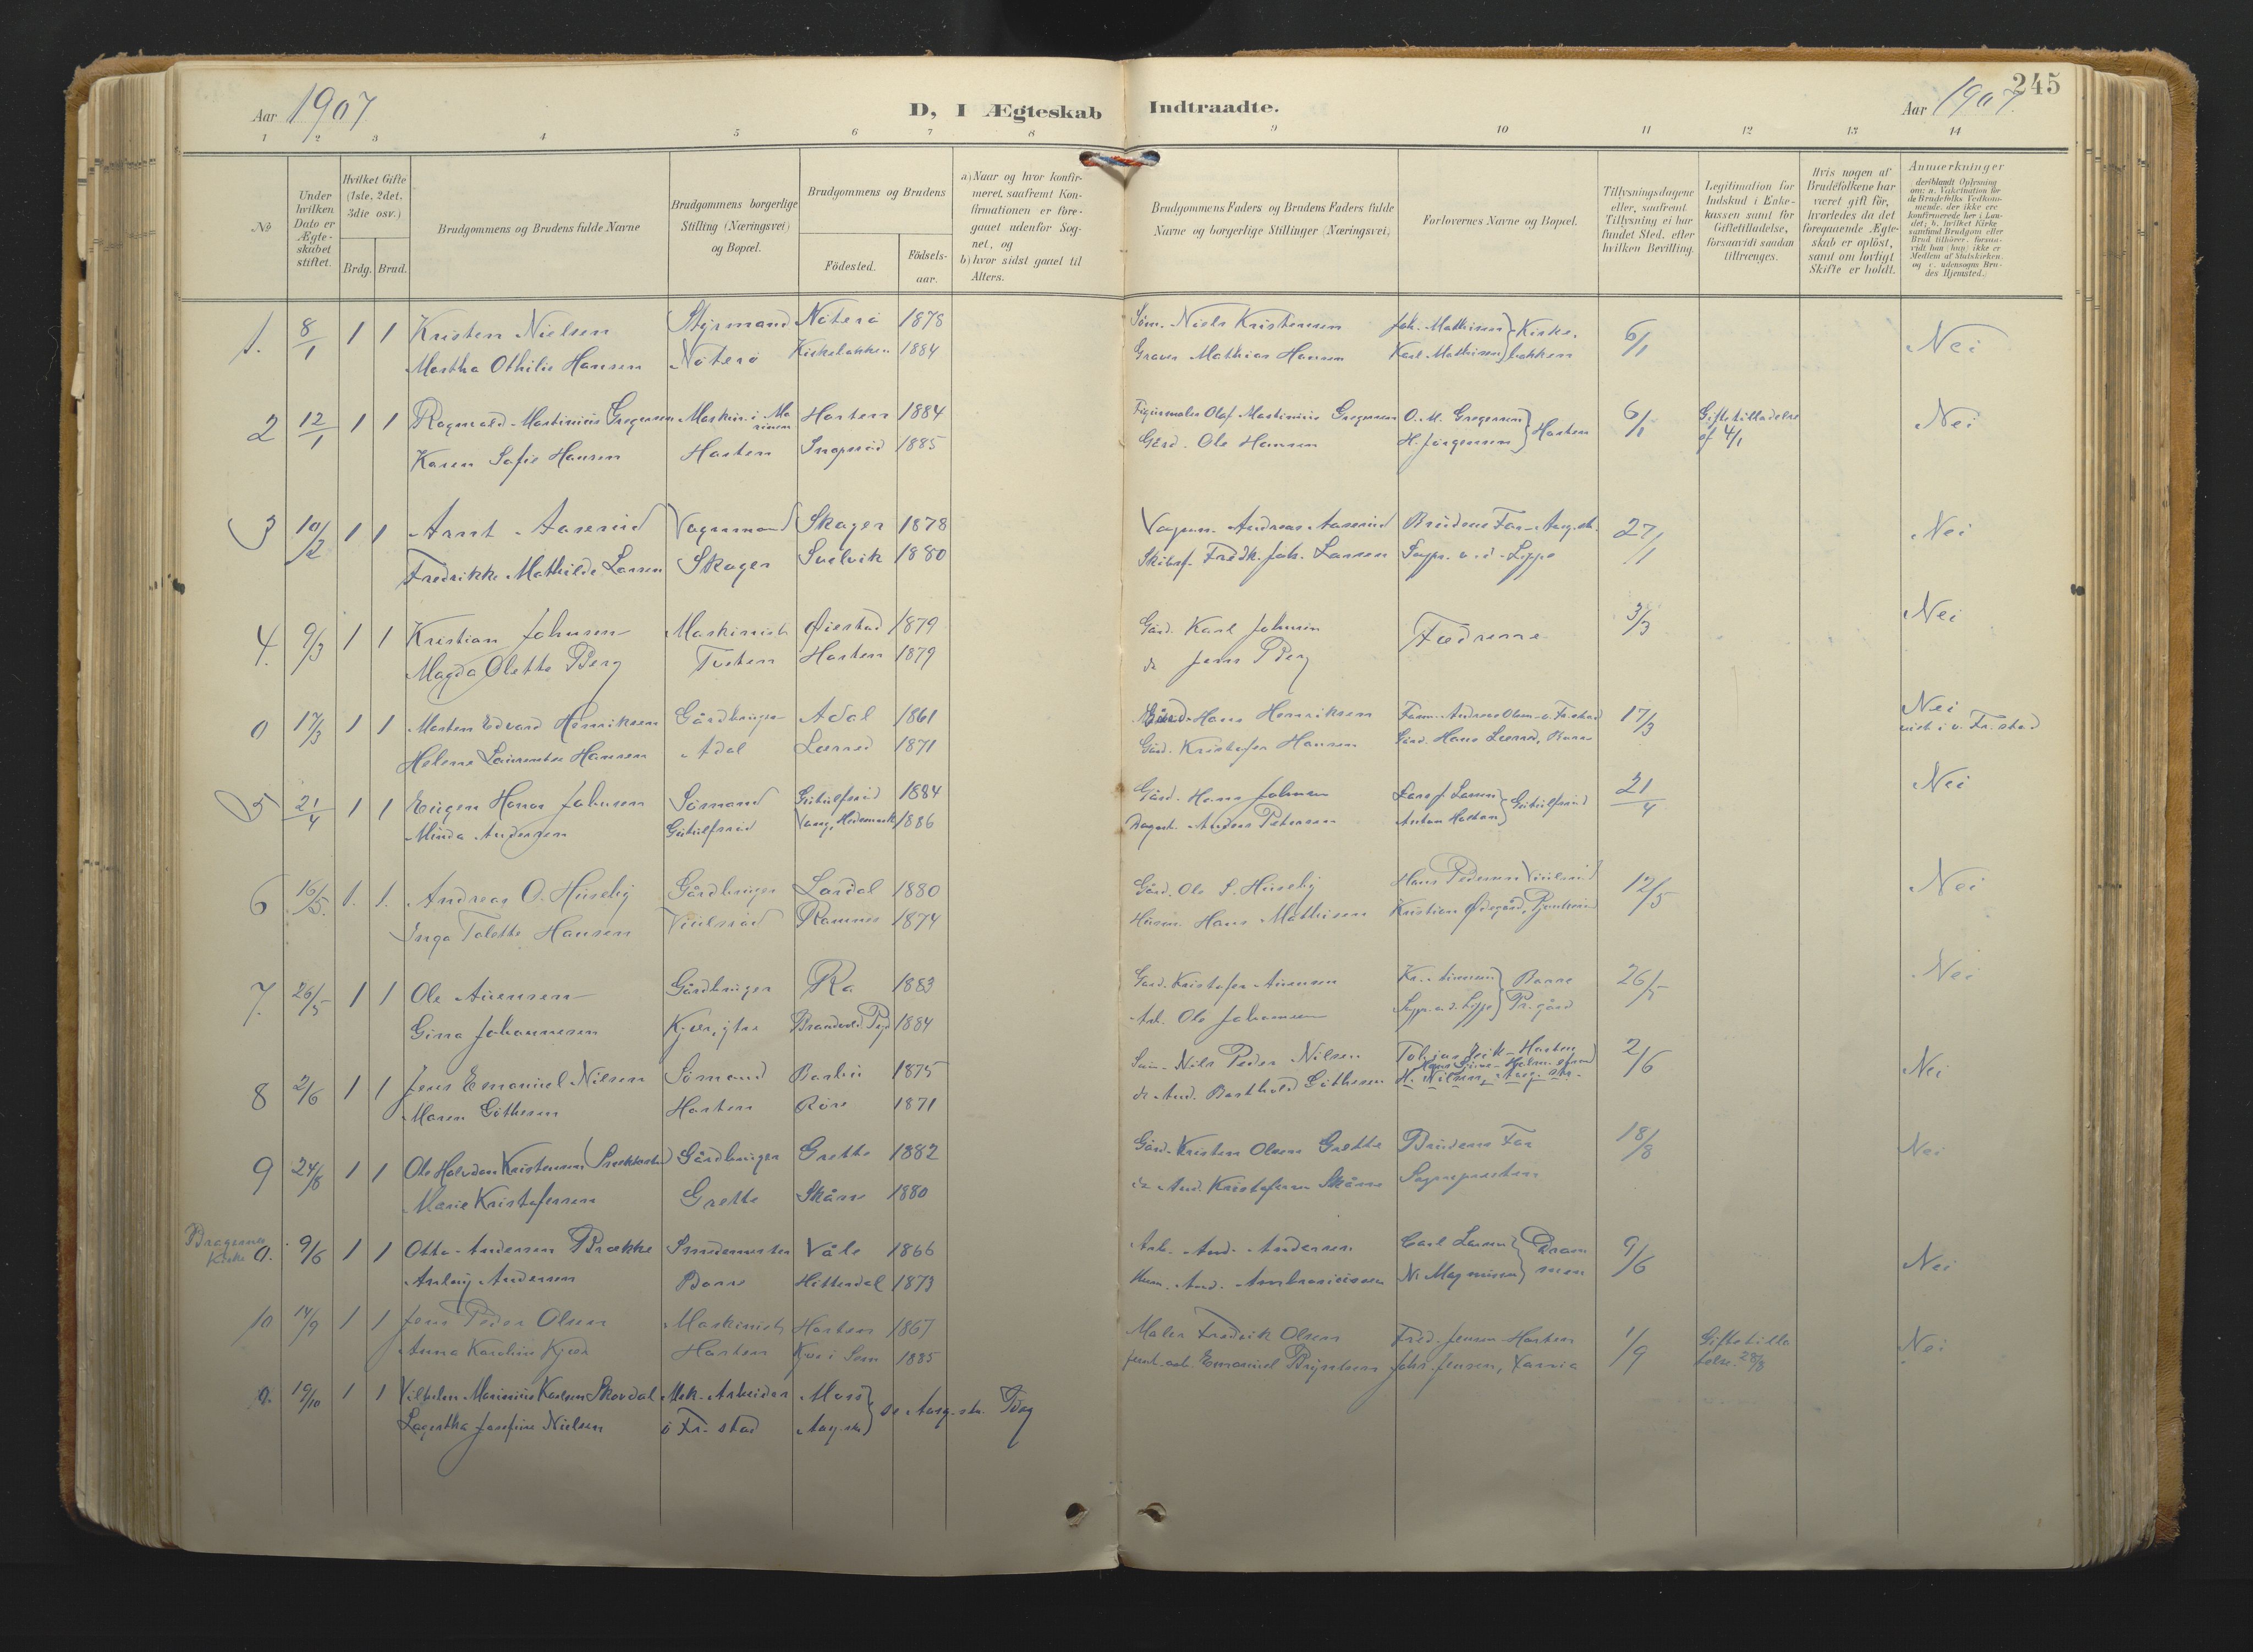 Aar 1907
D, I Ægteskab Indtraadte.
Aar 1907.
245
1 2 3 4 5 6 7 8 9 10 11 12 13 14
No
Under hvilken Dato er Ægteskabet stiftet.
Hvilket Gifte (1ste, 2det, 3die osv.)
Brdg. Brud.
Brudgommens og Brudens fulde Navne
Brudgommens borgerlige Stilling (Næringsvei) og Bopæl.
Brudgommens og Brudens
Fødested.
Fødselsaar.
a) Naar og hvor konfirmeret, saafremt Konfirmationen er foregaaet udenfor Sognet, og
b) hvor sidst gaaet til Alters.
Brudgommens Faders og Brudens Faders fulde Navne og borgerlige Stillinger (Næringsvei)
Forlovernes Navne og Bopæl.
Tillysningsdagene eller, saafremt Tillysning ei har fundet Sted, efter hvilken Bevilling.
Legitimation for Indskud i Enkekassen samt for Giftetilladelse, forsaavidt saadan tiltrænges.
Hvis nogen af Brudefolkene har været gift før, hvorledes da det foregaaende Ægteskab er opløst, samt om lovligt Skifte er holdt.
Anmerkninger
(deriblandt Oplysning om: a. Vakcination for de Brudefolks Vedkommende, der ikke ere konfirmerede her i Landet; b. hvilket Kirkesamfund Brudgom eller Brud tilhører, forsaavidt han (hun) ikke er Medlem af Statskirken, og c. udensogns Brudes Hjemsted.)
1. 8/1 1 1 Kristen Nielsen Styrmand Nøterø 1878 Søm. Niels Kristensen Joh. Mathisen } Kirke- 6/1 Nei
Martha Othilie Hansen Nøterø Kirkebakken 1884 Graver Mathias Hansen Karl Mathisen } bakken
2 12/1 1 1 Ragnvald Martinius Gregersen Maskin. i Marinen Horten 1884 Figurmaler Olaf Martinius Gregersen O. M. Gregersen } Horten 6/1 Giftetilladelse af 4/1 Nei
Karen Sofie Hansen Horten 1885 Gård. Ole Hansen H. Jørgensen
3 10/2 1 1 Arnt Aaserud Vognmand Skoger 1878 Vognm. Andreas Aaserud Brudens Far - Aasg.str. 27/1 Nei
Fredrikke Mathilde Larsen Skoger Svelvik 1880 Skibsf. Fredk. Joh. Larsen Sogpr. v. d. Lippe
4. 9/3 1 1 Kristian Johnsen Maskinist Øiestad 1879 Gård. Karl Johnsen Fædrene 3/3 Nei
Magda Olette Berg Tveten Horten 1879 do Jens Berg
0 17/3 1 1 Morten Edvard Henriksen Gårdbruger Adal 1861 Gård. Hans Henriksen Andreas Olsen v. Fr.stad 17/3 Nei
Helene Laurentse Hansen Adal Lærred 1871 Gård. Kristofer Hansen Gård. Hans Lærred, Borre viet i v. Fr.stad
5 21/4 1 1 Eugen Hans Johnsen Sømand Gutulfsrud 1884 Gård. Hans Johnsen Larsen } Gutulfsrud 21/4 Nei
Minda Andersen Gutulfsrud Vang, Hedemark 1886 Anders Petersen Anton
6 16/5. 1. 1. Andreas O. Huseby Gårdbruger Lardal 1880 Gård. Ole S. Huseby Hans Pedersen Viulsrud 12/5 Nei
Inga Tolette Hansen Viulsrød Ramnes 1874 Husm. Hans Mathisen Kristian Ødegård,
7. 26/5 1 1 Ole Auensen Gårdbruger Ra 1883 Gard. Kristofer Auensen Kr. Auensen } Borre 26/5 Nei
Gina Johannesen Kjær, ytre Brandvold Prgd 1884 Arb. Ole Johannesen Sogpr. v. d. Lippe } Pr.gård
8 2/6 1 1 Jens Emanuel Nilsen Sømand Barbu 1875 Søm. Nils Peder Nilsen Tobias Horten 2/6 Nei
Maren Gøthesen Horten Røre 1871 do And. Barthold Gøthesen H. Nilsen, Aasg.str.
9 24/8 1 1 Ole Halvdan Kristensen Gårdbruger Grette 1882 Gård. Kristen Olsen Grette Brudens Far 18/8 Nei
Marie Kristofersen Grette Skåne 1880 do And. Kristofersen Skåne Sognepresten
Bragernes Kirke 0. 9/6 1 1 Otto Andersen Brække Smedemester Våle 1866 Arb. And. Andersen Carl Larsen } Dram- 9/6 Nei
Anlaug Andersen Borre Hitterdal 1873 Husm. And. Ambrosiussen N. Magnusen } men
10 14/9 1 1 Jens Peder Olsen Maskinist Horten 1867 Maler Fredrik Olsen Fred. Jensen Horten 1/9 Giftetilladelse 28/8 Nei
Anna Karoline Kjær Horten Kjær i Sem 1885 Emanuel Bryntesen Johs. Jensen,
0. 19/10 1 1 Vilhelm Marinius Karlsen Skovdal Mek. Arbeider Moss } se Aasg.str. Bog
Lagertha Josefine Nielsen i Fr.stad Aasg.str.